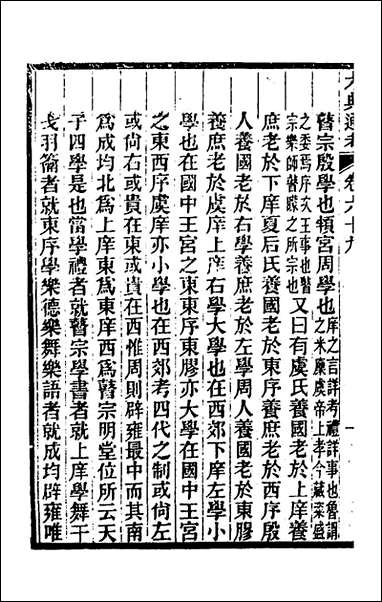 六典通考 卷六十九 一
瞽宗殷學也頖宮周學也庠之言詳考禮詳事也魯謂之米廩虞帝上孝今藏粢盛
之委焉序次王事也瞽宗樂師瞽矇之所宗也又曰有虞氏養國老於上庠養
庶老於下庠夏后氏養國老於東序養庶老於西序殷
人養國老於右學養庶老於左學周人養國老於東膠
養庶老於虞庠上庠右學大學也在西郊下庠左學小
學也在國中王宮之東東序東膠亦大學在國中王宮
之東西序虞庠亦小學也在西郊考四代之制或尙左
或尙右或貴在東或貴在西惟周則辟雍最中而其南
爲成均北爲上庠東爲東序西爲瞽宗明堂位所云天
子四學是也當學禮者就瞽宗學書者就上庠學舞干
戈羽籥者就東序學樂德樂舞樂語者就成均辟雍唯